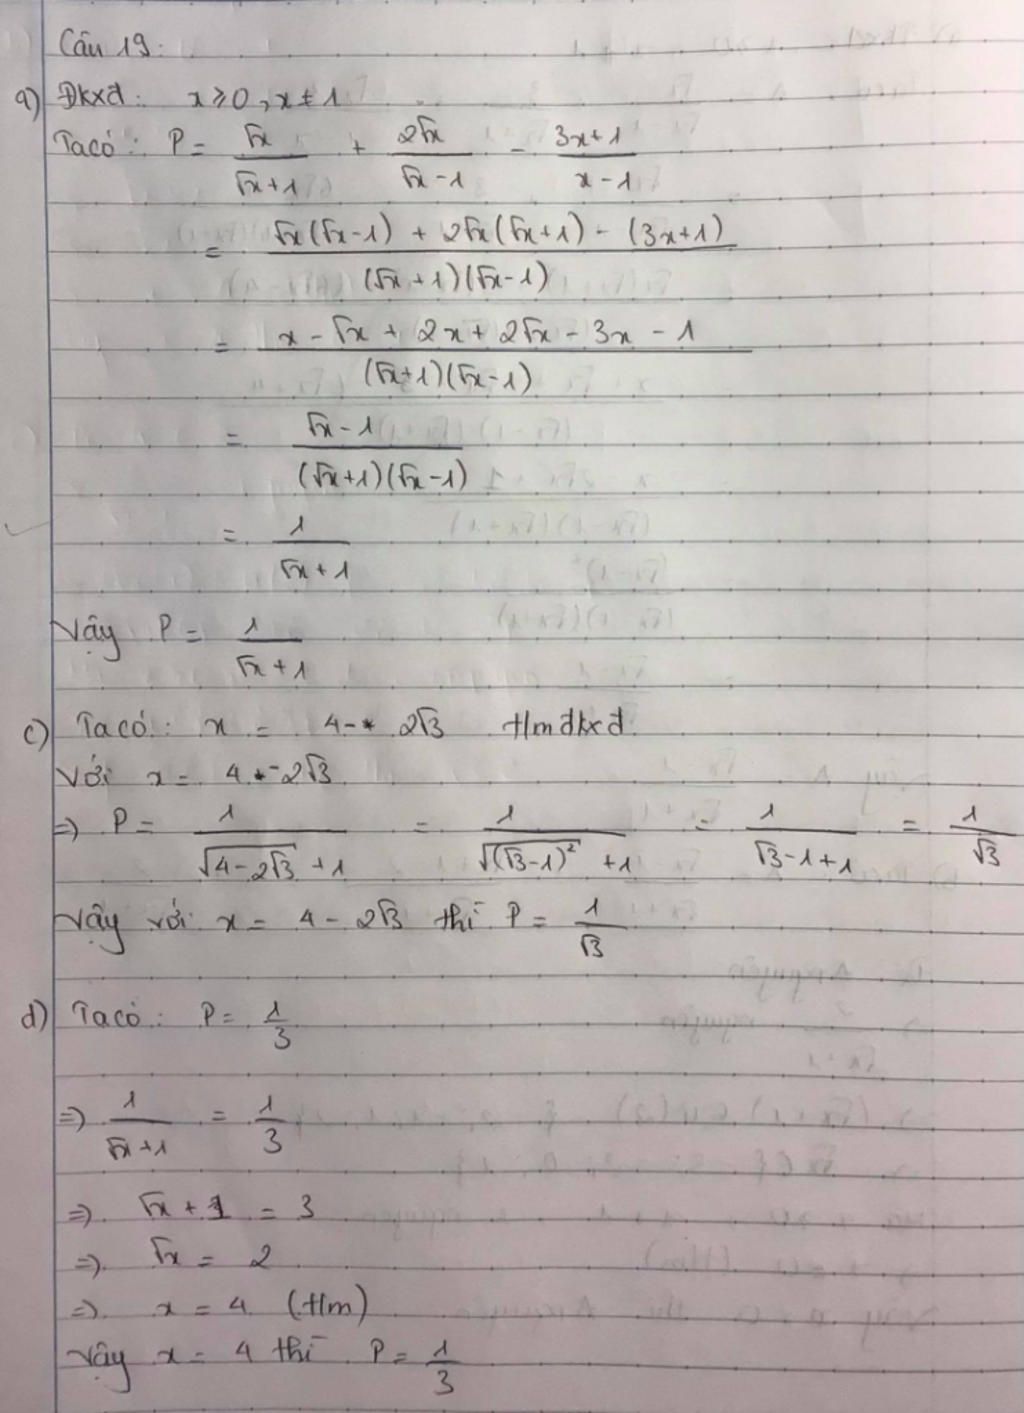 Câu 19:
a) Đkxđ: x ≥ 0, x ≠ 1
Ta có: P = √x/(√x+1) + 2√x/(√x-1) - (3x+1)/(x-1)
= (√x(√x-1) + 2√x(√x+1) - (3x+1))/((√x+1)(√x-1))
= (x - √x + 2x + 2√x - 3x - 1)/((√x+1)(√x-1))
= (√x-1)/((√x+1)(√x-1))
= 1/(√x+1)
Vậy P = 1/(√x+1)
c) Ta có: x = 4 - 2√3 t/m đkxđ
Với x = 4 - 2√3
=> P = 1/(√(4-2√3) + 1) = 1/(√((√3-1)²) + 1) = 1/(√3-1+1) = 1/√3
Vậy với x = 4 - 2√3 thì P = 1/√3
d) Ta có: P = 1/3
=> 1/(√x+1) = 1/3
=> √x + 1 = 3
=> √x = 2
=> x = 4 (t/m)
Vậy x = 4 thì P = 1/3